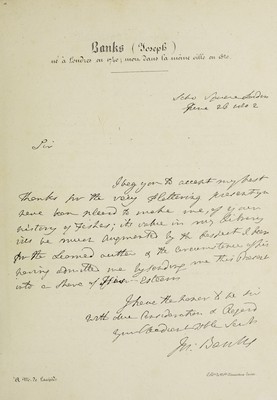 Banks (Joseph)
né à Londres en 1740; mort dans la même ville en 1820.
Soho Square London
June 26 1802
Sir
I beg you to accept my best
Thanks for the very flattering present you
have been pleasd to make me, of your
History of Fishes; its value in my Library
will be much augmented by the Respect I bear
for the Learned author & the circumstance of his
having admitted me by sending me this Present
into a share of his Esteem
I have the honor to be Sir
with due Consideration & Regard
your Obedient Hble Servt
Jos: Banks
A Mr. de Lacepède.